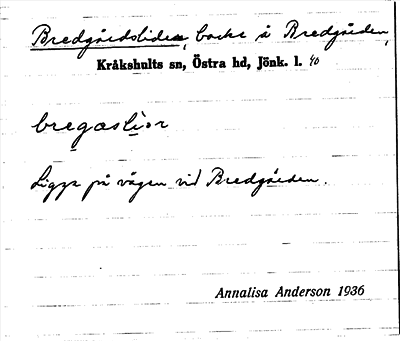 Bredgärdsliden, backe å Bredgärden,
Kråkshults sn, Östra hd, Jönk. l. 40
bregasliər
Ligger på vägen vid Bredgärden.
Annalisa Anderson 1936